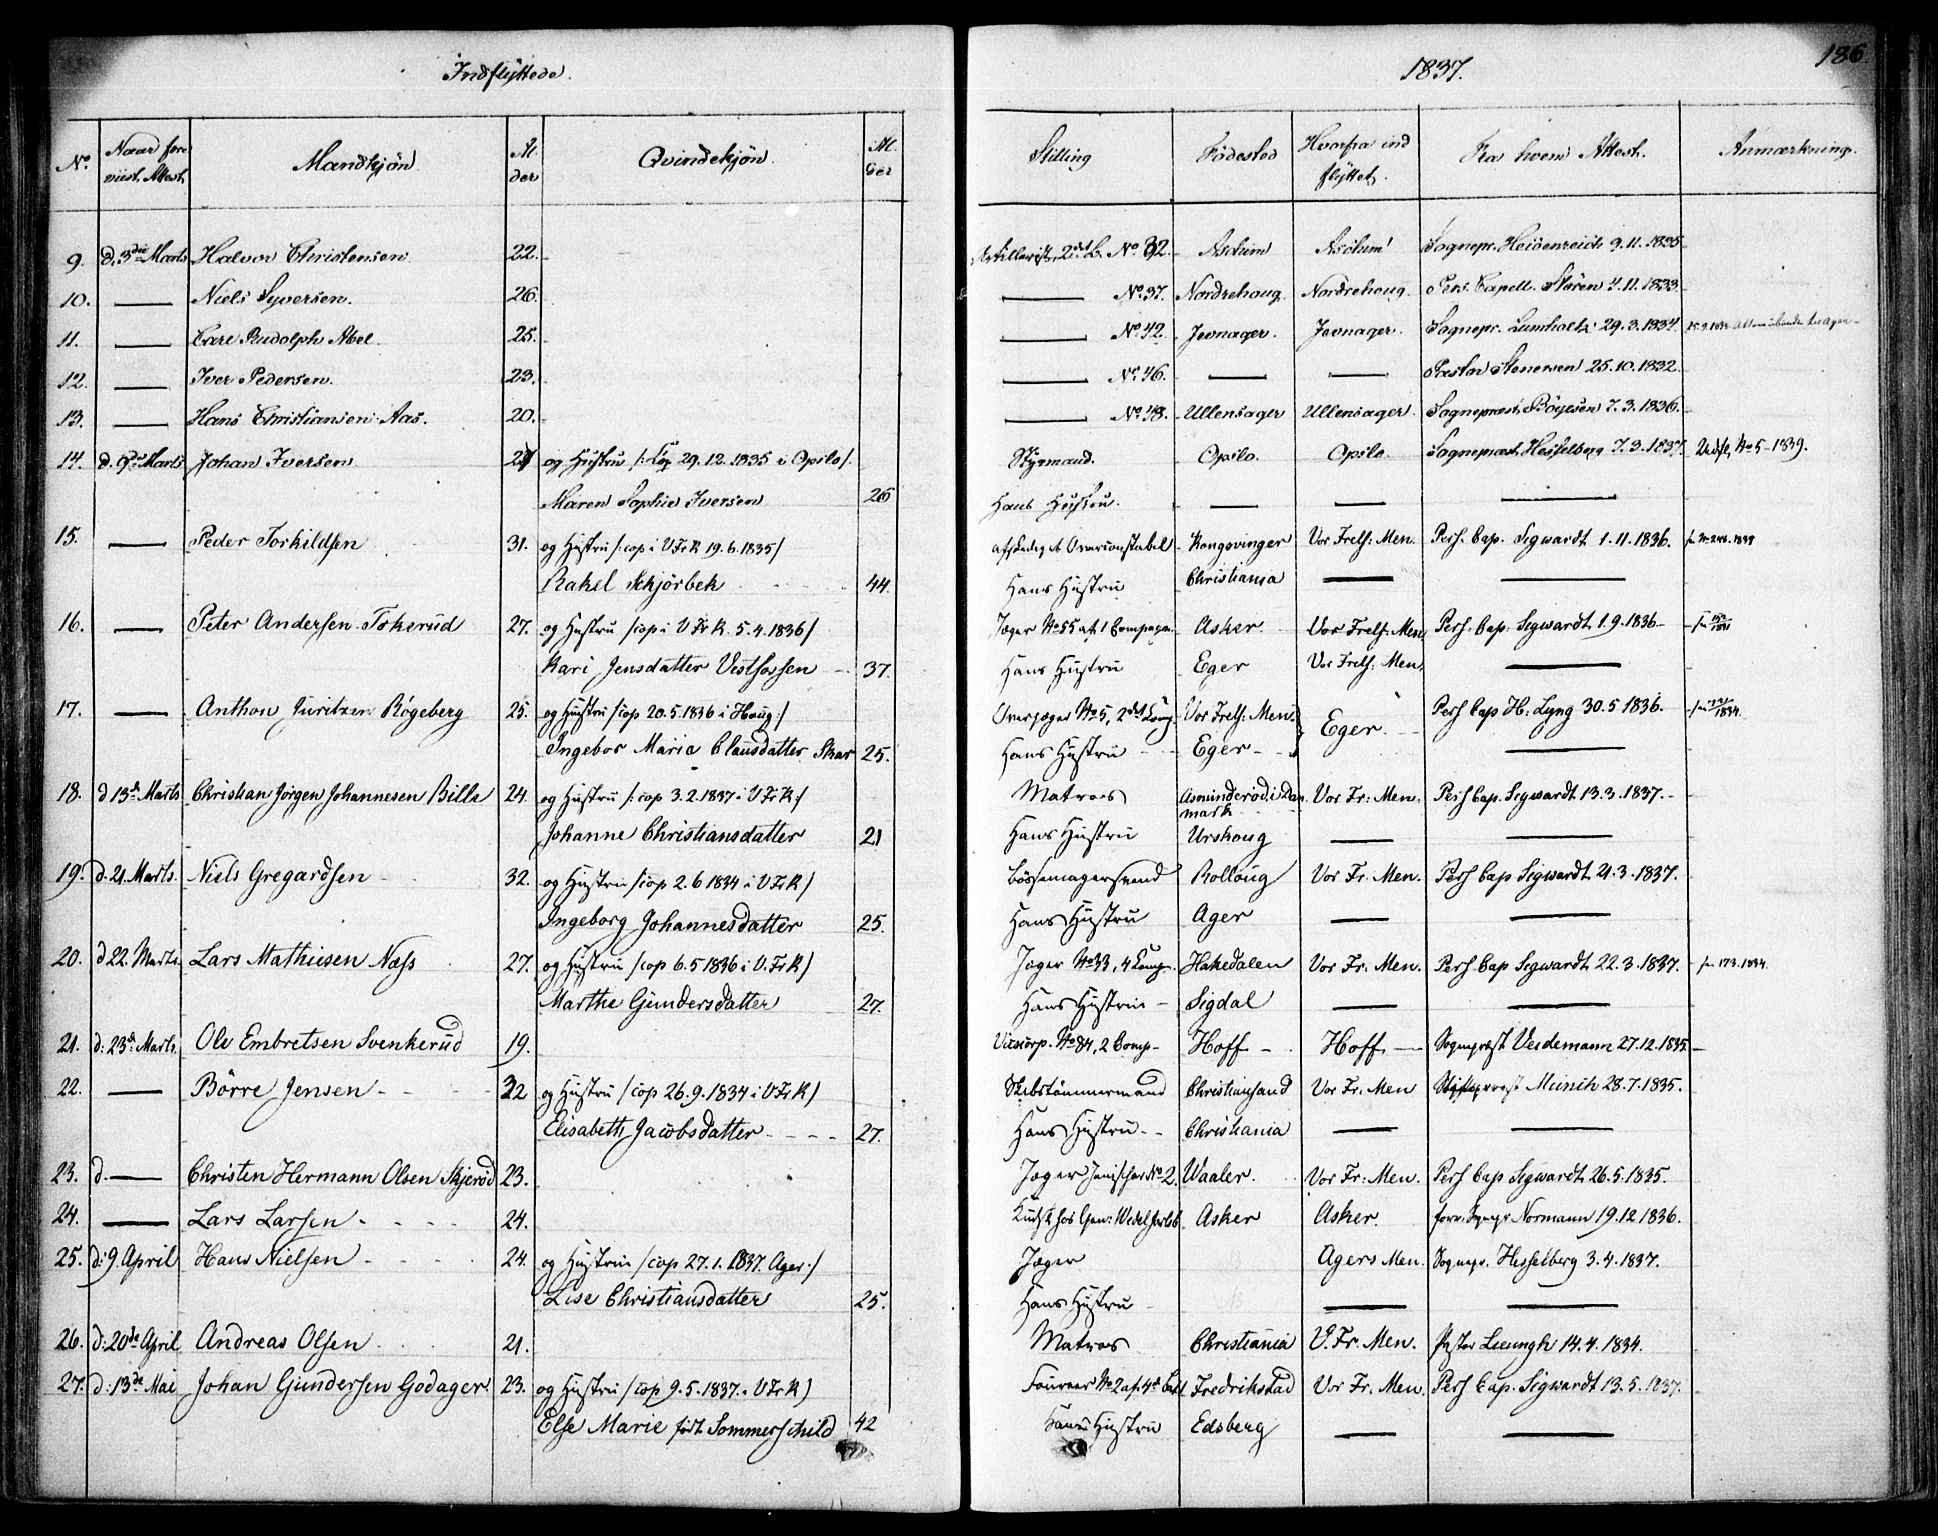 Indflyttede.
1837.
186.
No. Naar fore- viist Attest. Mandkjøn. Al- der Qvindekjøn. Al- der Stilling Fødested Hvorfra ind flyttet. Fra hvem Attest. Anmærkning.
9. d. 3die Marts Halvor Christensen 22. Artillerist, 2det B. No 32. Aschim Aschim Sognepr. Heidenreich 9.11.1835
10. — Niels Syversen. 26. — No 37. Nordrehoug. Nordrehoug. Pers. Capell. Støren 4.11.1833
11. — Carl Rudolph Abel. 25. — No 42. Jevnager. Jevnager. Sognepr. Lumholtz 29.3.1834.
12. — Iver Pedersen. 23. — No 46. — — Pastor Stenersen 25.10.1832.
13. — Hans Christiansen Aas. 20. — No 48. Ullensager Ullensager. Sognepræst Böyesen 7.3.1836.
14. d. 9de Marts Johan Iversen og Hustru /: Cop 29.12.1835 i Opslo /. Styrmand. Opslo. Opslo. Sognepræst Hesselberg 7.3.1837. Udfl. No 5 - 1839.
Maren Sophie Iversen 26 Hans Hustru. — — —
15. — Peder Torkildsen 31. og Hustru /: cop i V Fr K 19.6.1835/ afskediget Overconstabel Kongsvinger Vor Frels: Men. Pers. Cap. Sigwardt 1.11.1836.
Rakel Skjörbek 44. Hans Hustru Christiania — —
16. — Peter Andersen Tokerud 27. og Hustru /cop i V Fr K. 5.4.1836/ Jæger No 55 af 1 Compagn. Asker. Vor Frels: Men. Pers. Cap. Sigwardt 1.9.1836
Kari Jensdatter Vestfossen 37. Hans Hustru Eger Vor Frels: Men. —
17. — Anthon Juritzen Røgeberg 25. og Hustru /cop 20.5.1836 i Houg:/ Overjæger No 5, 2det Comp. Vor Frels: Men. Eger. Pers Cap H: Lyng 30.5 1836.
Ingebor Maria Clausdatter Skar 25. Hans Hustru Eger —
18. d 13de Marts Christian Jørgen Johannesen Bille 24. og Hustru /: cop 3.2.1837 i V Fr K:/ Matros Asminderöd i Dan- mark Vor Fr: Men. Pers Cap. Sigwardt 13.3.1837.
Johanne Christiansdatter 21 Hans Hustru Urskoug — —
19. d. 21. Marts. Niels Gregardsen 32. og Hustru /cop 2.6 1834 i V Fr K/ Bössemagersvend Rolloug Vor Fr. Men. Pers Cap Sigwardt 21.3.1837.
Ingeborg Johannesdatter 25. Hans Hustru Ager — —
20. d 22. Marts. Lars Mathiesen Næss 27. og Hustru /cop 6.5 1836 i V. Fr K/ Jæger No 33, 4 Comp. Hakedalen Vor Fr. Men. Pers Cap Sigwardt 22.3.1837.
Marthe Gundersdatter 27. Hans Hustru Sigdal — —
21. d: 23de Marts. Ole Embretsen Svenkerud 19. Vicecorp. No 84, 2 Comp. Hoff Hoff. Sognepræst Veidemann 27.12.1835
22. — Börre Jensen 32 og Hustru /cop 26.9.1834 i V Fr K/ Skibstömmermand Christiansand Vor Fr: Men Stiftsprovst Münch 28.7.1835.
Elisabeth Jacobsdatter 27. Hans Hustru Christiania — —
23. d. — Christen Hermann Olsen Skjeröd 23. Jæger Janischar No 2. Waaler. Vor Fr: Men. Pers Cap Sigwardt 26.5.1835.
24. — Lars Larsen 24. Kudsk hos Gen: Wedel Jarlsb. Asker Asker. forr. Sognepr Normann 19.12 1836.
25. d: 9 April Hans Nielsen 24. og Hustru /cop 27.1.1837. Ager:/ Jæger Agers Men. Sognepr. Hesselberg 3.4.1837.
Lise Christiansdatter 25. Hans Hustru — —
26. d: 20de April Andreas Olsen 21. Matros Christiania V. Fr: Men. Pastor Lieungh 14.4.1834.
27. d: 13de Mai Johan Gundersen Godager 23. og Hustru /cop 9.5.1837. i V Fr K/ Foureer No 2 af 4de Fredrikstad Vor Fr. Men. Pers Cap. Sigwardt 13.5.1837.
Else Marie födt Sommerschild 42 Hans Hustru Edsberg — —